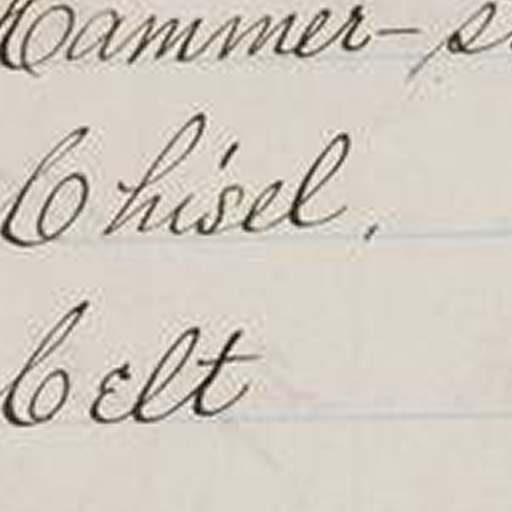 Hammer-s
Chisel.
Celt